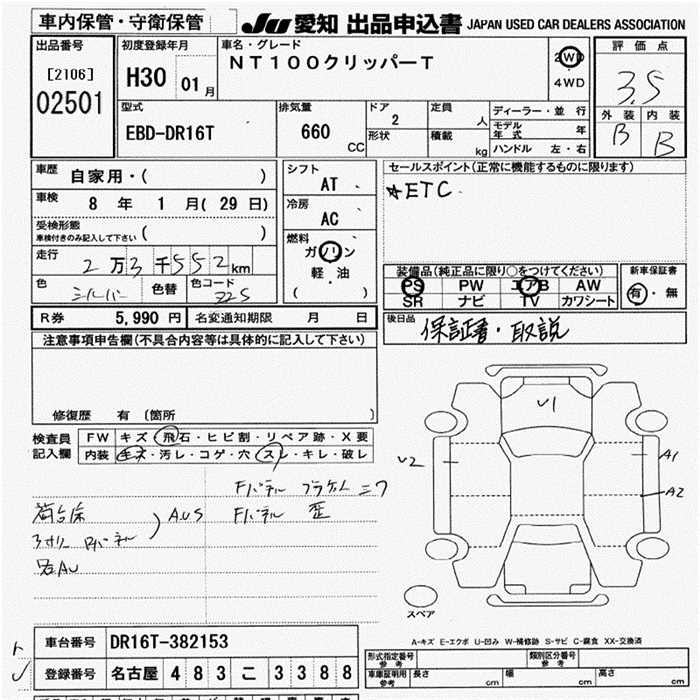 車内保管・守衛保管
JU 愛知 出品申込書 JAPAN USED CAR DEALERS ASSOCIATION
出品番号
[2106]
02501
初度登録年月
H30 01月
車名・グレード
NT100クリッパーT
2WD
4WD
評価点
3.5
外装 内装
B B
型式
EBD-DR16T
排気量
660
CC
ドア
2
形状
定員
人
積載
kg
ディーラー・並行
モデル年式 年
ハンドル 左・右
車歴
自家用・( )
車検
8 年 1 月( 29 日)
受検形態
車検付きのみ記入して下さい ( )
走行
2万3千552km
色
シルバー
色替
色コード
Z2S
シフト
AT
冷房
AC
燃料
ガソリン
軽・油
( )
セールスポイント(正常に機能するものに限ります)
☆ETC
装備品(純正品に限り○をつけてください)
PS PW エアB AW
SR ナビ TV カワシート
新車保証書
有・無
R券 5,990 円 名変通知期限 月 日
後日品
保証書・取説
注意事項申告欄(不具合内容等は具体的に記入して下さい)
修復歴 有 (箇所 )
検査員記入欄
FW キズ・飛石・ヒビ割・リペア跡・X要
内装 キズ・汚レ・コゲ・穴・スレ・キレ・破レ
Fパネル
Fパネル 歪
AUS
U1
U2
A1
A2
スペア
A-キズ E-エクボ U-凹み W-補修跡 S-サビ C-腐食 XX-交換済
車台番号 DR16T-382153
登録番号 名古屋 483 こ 3388
型式指定番号 参考
類別区分番号 参考
車庫証明用 参考
長さ cm
幅 cm
高さ cm